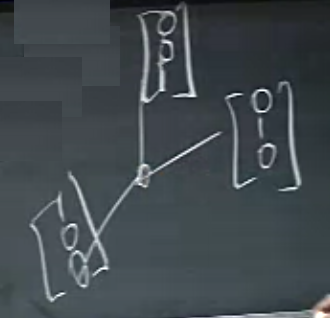 [0
0
1]
[0
1
0]
[1
0
0]